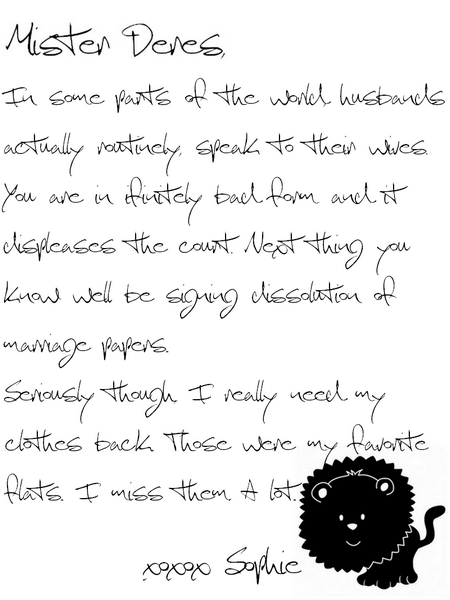 Mister Deres,
In some parts of the world, husbands
actually, routinely, speak to their wives.
You are in ifinitely bad form and it
displeases the court. Next thing you
know well be signing dissolution of
marriage papers.
Seriously though. I really need my
clothes back. Those were my favorite
flats. I miss them. A lot.
xoxoxo Sophie